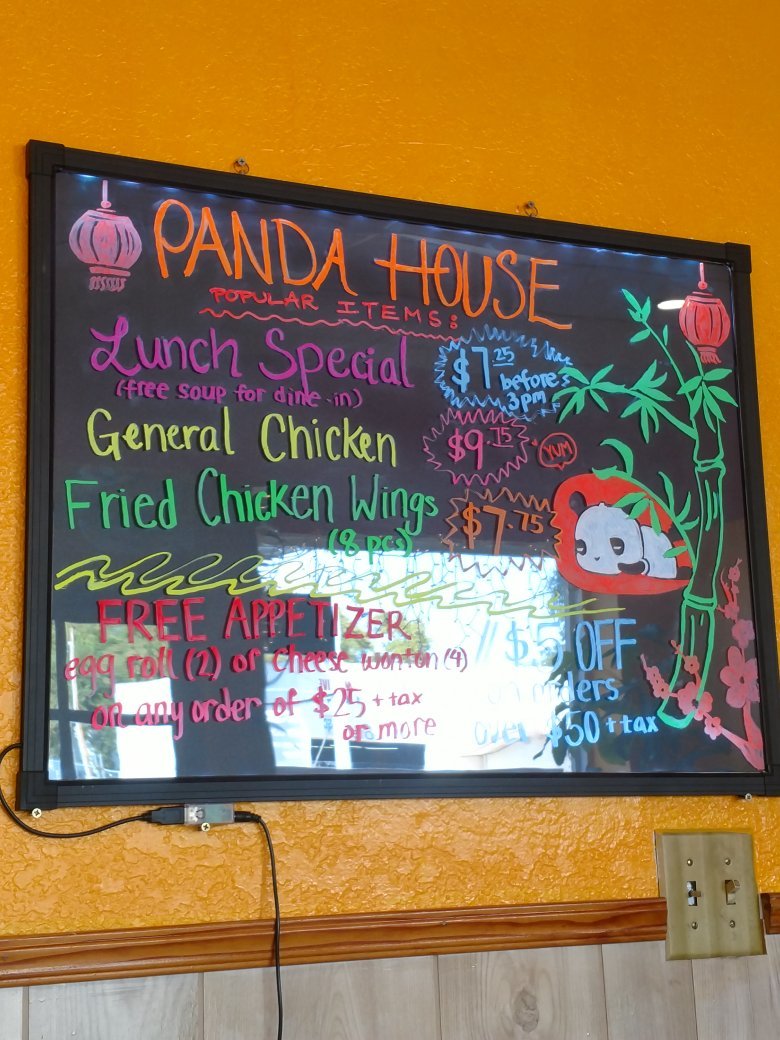 PANDA HOUSE
POPULAR ITEMS:
Lunch Special $7.25 before 3pm
(free soup for dine-in)
General Chicken $9.75 YUM
Fried Chicken Wings $7.75
(8 pcs)
FREE APPETIZER
egg roll (2) or cheese wonton (4)
on any order of $25 + tax
or more
// $5 OFF
on orders
over $50 + tax